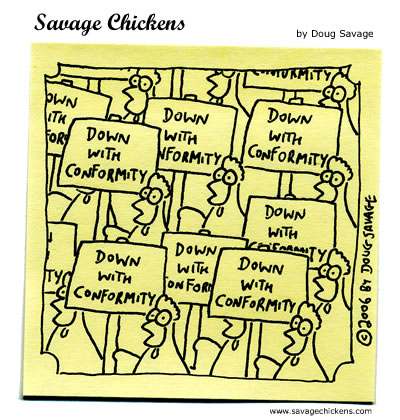 Savage Chickens
by Doug Savage
CONFORMITY
DOWN
WITH
CONFOR
DOWN
WITH
NFORMITY
DOWN
WITH
CONFORMITY
DOWN
WITH
CONFORMITY
DOWN
WITH
DOWN
WITH
CONFORMITY
DOWN
WITH
ONFOR
DOWN
WITH
CONFORMITY
©2006 BY DOUG SAVAGE
www.savagechickens.com